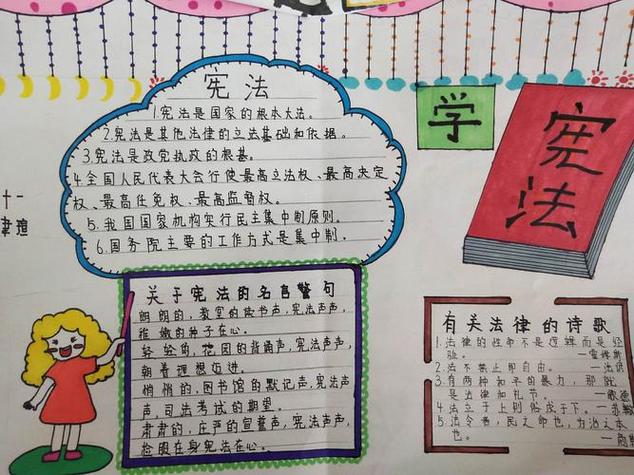 宪法
1.宪法是国家的根本大法。
2.宪法是其他法律的立法基础和依据。
3.宪法是政党执政的根基。
4.全国人民代表大会行使最高立法权、最高决定
权、最高任免权、最高监督权。
5.我国国家机构实行民主集中制原则。
6.国务院主要的工作方式是集中制.
学
宪法
十一
关于宪法的名言警句
朗朗的,教室的读书声,宪法声声,
稚嫩的种子在心。
轻轻的,花园的背诵声,宪法声声,
朝着理想迈进。
悄悄的,图书馆的默记声,宪法声
声,司法考试的期望。
肃肃的,庄严的宣誓声,宪法声声,
在身宪法在心。
有关法律的诗歌
1.法律的性命不是逻辑而是经
验。
2.法不禁止即自由。
3.有两种和平的暴力,那就
是法律和礼节。
4.法立于上则俗成于下。
5.法令者,民之命也,为治之本
也。